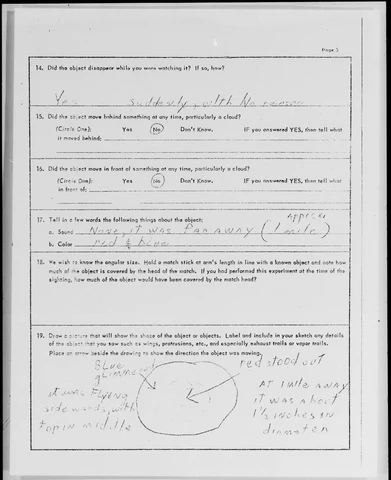 Page 3
14. Did the object disappear while you were watching it? If so, how?
Yes suddenly, with No reason
15. Did the object move behind something at any time, particularly a cloud?
(Circle One): Yes No Don't Know. IF you answered YES, then tell what
it moved behind:
16. Did the object move in front of something at any time, particularly a cloud?
(Circle One): Yes No Don't Know. IF you answered YES, then tell what
in front of:
17. Tell in a few words the following things about the object:
approx.
a. Sound None, it was FAR AWAY (1 mile)
b. Color red & blue
18. We wish to know the angular size. Hold a match stick at arm's length in line with a known object and note how
much of the object is covered by the head of the match. If you had performed this experiment at the time of the
sighting, how much of the object would have been covered by the match head?
19. Draw a picture that will show the shape of the object or objects. Label and include in your sketch any details
of the object that you saw such as wings, protrusions, etc., and especially exhaust trails or vapor trails.
Place an arrow beside the drawing to show the direction the object was moving.
Blue
red stood out
it was FLYING
sidewards, with
top in middle
AT 1 mile AWAY
it was About
1½ inches in
diamater